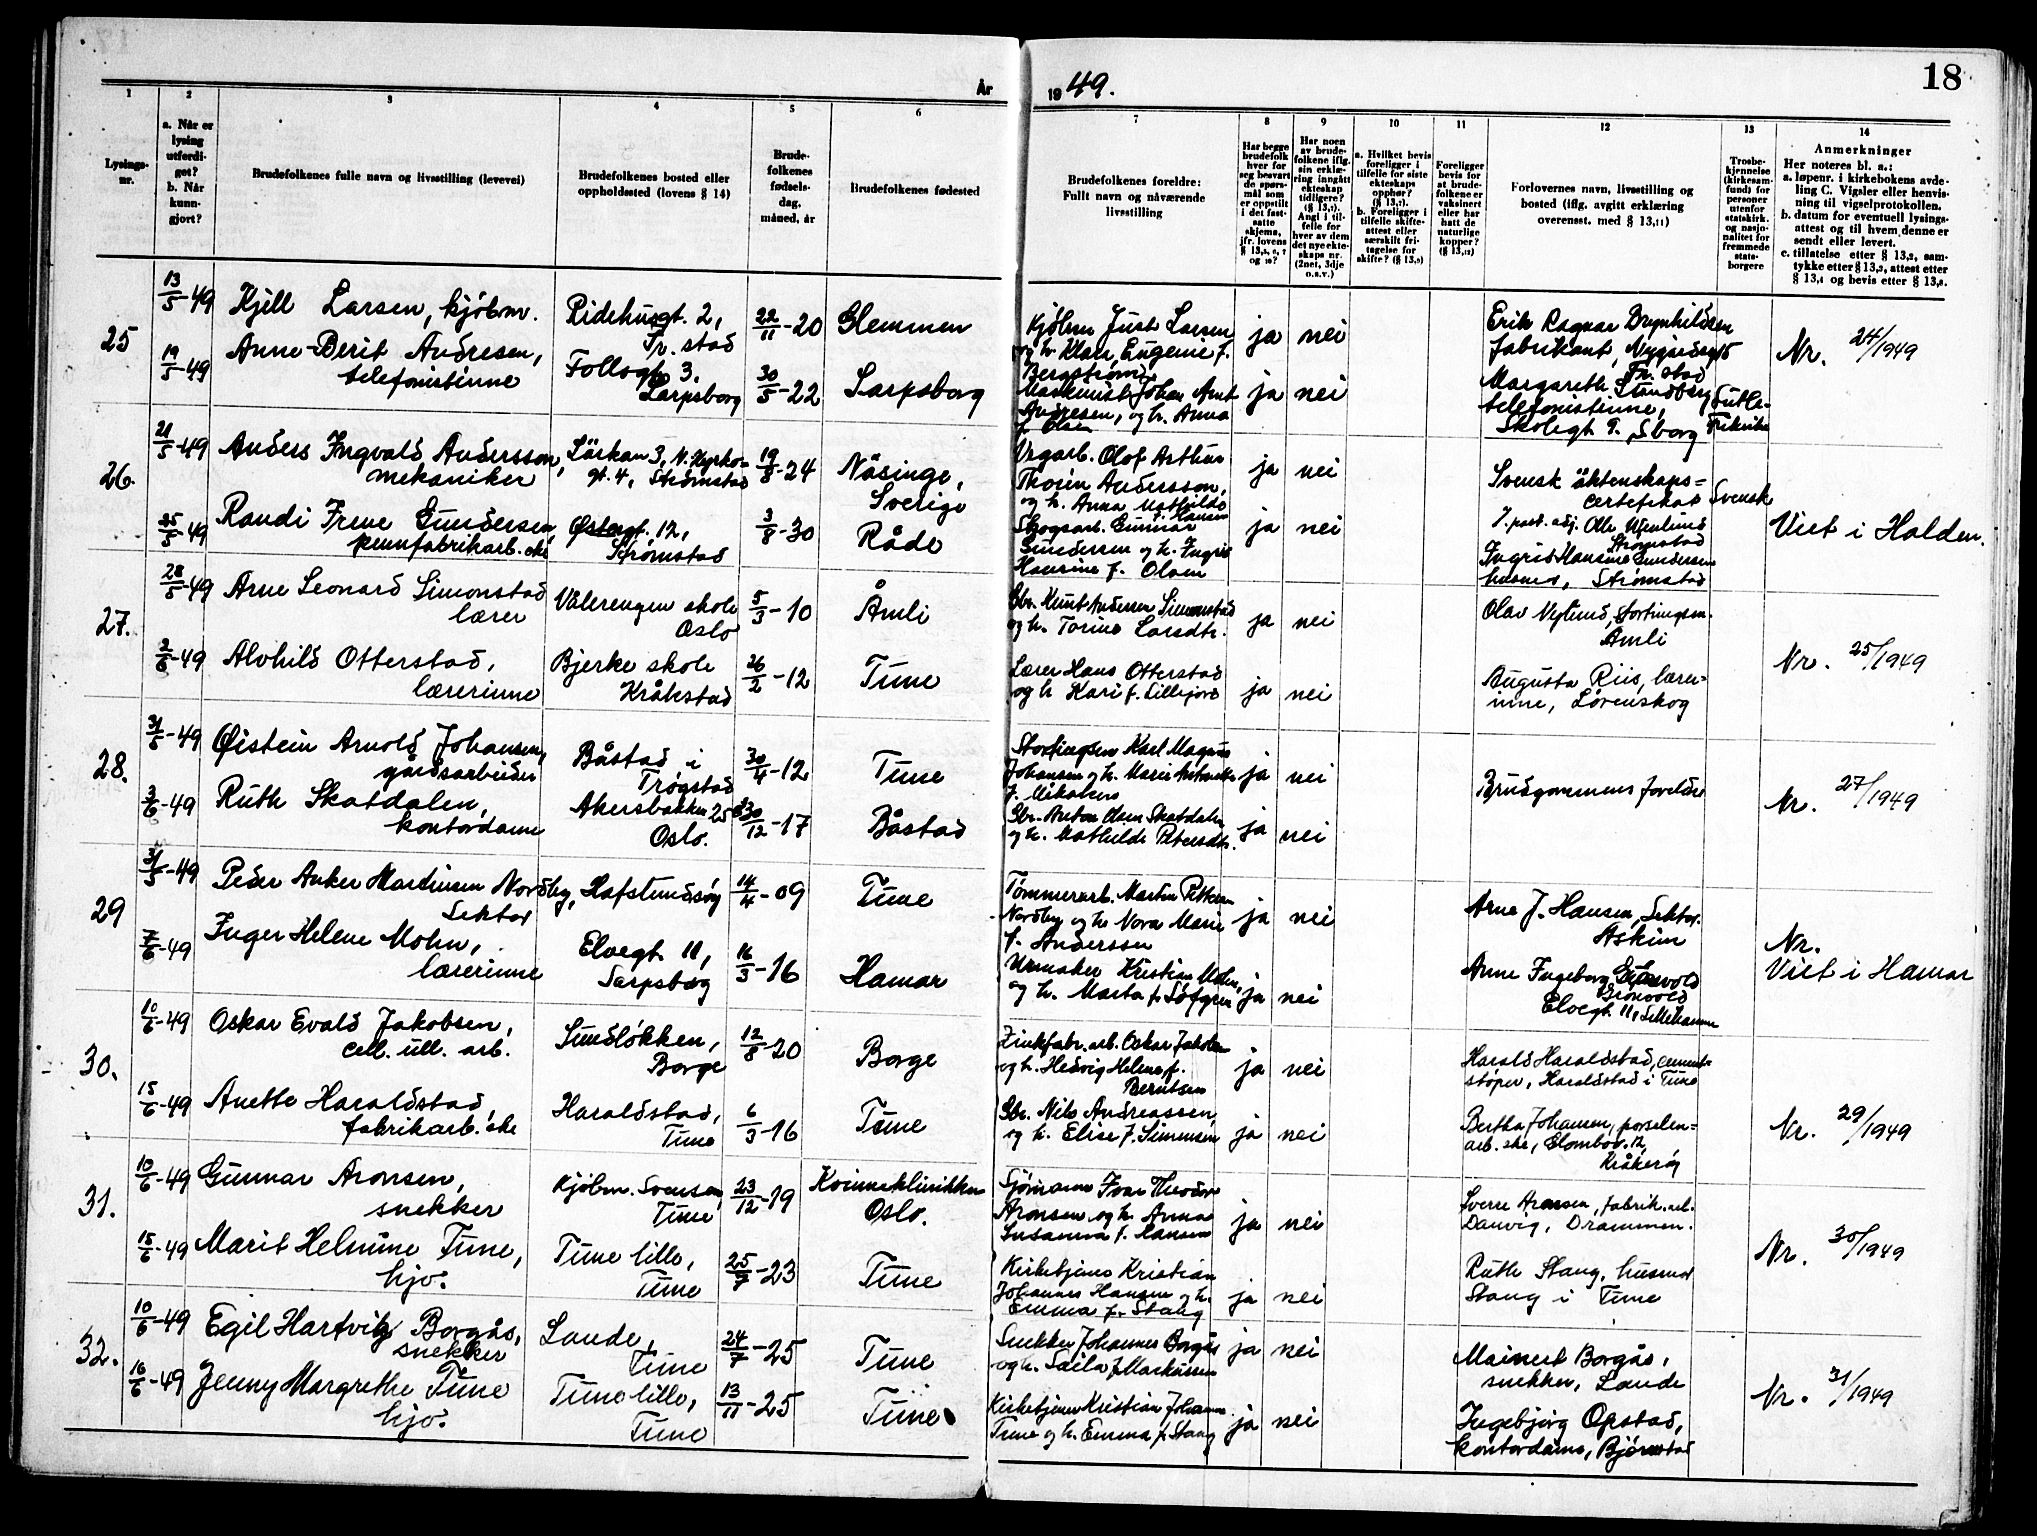 År 1949.
18
1
2
3
4
5
6
7
8
9
10
11
12
13
14
Lysings-
nr.
a. Når er
lysing
utferdi-
get?
b. Når
kunn-
gjort?
Brudefolkenes fulle navn og livsstilling (levevei)
Brudefolkenes bosted eller
oppholdssted (lovens § 14)
Brude-
folkenes
fødsels-
dag,
måned, år
Brudefolkenes fødested
Brudefolkenes foreldre:
Fullt navn og nåværende
livsstilling
Har begge
brudefolk
hver for
seg besvart
de spørs-
mål som
er oppstilt
i det fast-
satte
skjema,
jfr. lovens
Har noen
av brude-
folkene iflg.
sin erklæ-
ring inngått
ekteskap
tidligere?
(§ 13,1).
Angi i til-
felle for
hver av dem
det nye ekte-
skaps nr.
(2net, 3dje
o.s.v.)
a. Hvilket bevis
foreligger i
tilfelle for siste
ekteskaps
opphør?
(§ 13,7).
b. Foreligger i
tilfelle skifte-
attest eller
særskilt fri-
tagelse for
skifte?
Foreligger
bevis for
at brude-
folkene er
vaksinert
eller har
hatt de
naturlige
kopper?
Forlovernes navn, livsstilling og
bosted (iflg. avgitt erklæring
overensst. med § 13,11)
Trosbe-
kjennelse
(kirkesam-
fund) for
personer
utenfor
statskirk.
og nasjo-
nalitet for
fremmede
stats-
borgere
Anmerkninger
Her noteres bl. a.:
a. løpenr. i kirkebokens avde-
ling C. Vigsler eller henvis-
ning til vigselprotokollen.
b. datum for eventuell lysings-
attest og til hvem denne er
sendt eller levert.
c. tillatelse etter § 13,2, sam-
tykke etter § 13,3, attest etter
§ 13,4 og bevis etter § 13,8.
25
13/5-49 Kjell Larsen, kjøbm.
Ridehusgt. 2,
Fr.stad
22/11-20 Glemmen
Kjøbm Just Larsen
og h. Klara Eugenie f.
Bergstrøm
ja nei
Erik Ragnar Brynhildsen
fabrikant, Nygårdsg 15
Fr.stad
19/5-49 Anne-Berit Andresen,
telefonistinne
Follogt 3.
Sarpsborg
30/5-22 Sarpsborg
Maskinist Johan Arnt
Andresen, og h. Anna
f. Olsen
ja nei
Margareth Strandberg
telefonistinne,
Skolegt 9. S.borg
Nr. 24/1949
26.
21/5-49 Anders Ingvald Andersson,
mekaniker
Lärkan 3, N. Kyrko-
gt. 4, Strømstad
19/8-24 Näsinge,
Sverige
Vegarb. Olof Arthur
Thorin Andersson,
og h. Anna Mathilda
f. Hansen
ja nei
Svensk äktenskaps-
certefikat
Svensk
25/5-49 Randi Irene Gundersen
Østergt. 12,
Strømstad
3/8-30 Råde
Skogsarb. Gunnar
Gundersen og h. Ingrid
Hansine f. Olsen
ja nei
Ingrid Hansine Gundersen
husmor, Strømstad
Viet i Halden.
27.
28/5-49 Arne Leonard Simonstad
lærer
Vålerengen skole
Oslo
5/3-10 Åmli
Gbr. Knut Andersen Simonstad
og h. Torine Larsdtr.
ja nei
Olav Vegheim, stortingsm.
Åmli
2/6-49 Alvhild Otterstad,
lærerinne
Bjerke skole
Kråkstad
26/2-12 Tune
Lærer Hans Otterstad
og h Kari f. Lillejord
ja nei
Augusta Riis, lærer-
inne, Lørenskog
Nr. 25/1949
28.
31/5-49 Øistein Arnold Johansen,
gårdsarbeider
Båstad i
Trøgstad
30/4-12 Tune
Karl Magnus
Johansen og h. Marie
f. Mikalsen
ja nei
Brudgommens foreldre
3/6-49 Ruth Skatdalen,
kontordame
Akersbakken 25
Oslo.
30/12-17 Båstad
Gbr. Anton Olsen Skatdalen
og h. Mathilde Petersdtr.
ja nei
Nr. 27/1949
29
31/5-49 Peder Anker Martinsen Nordby,
lektor
Hafslundsøy
14/4-09 Tune
Tømmerarb. Martin Pettersen
Nordby og h Nora Marie
f. Andersson
ja nei
Arne J. Hansen, lektor.
Askim
7/6-49 Inger Helene Mohn,
lærerinne
Elvegt 11,
Sarpsborg
16/3-16 Hamar
Urmaker Kristian Mohn,
og h. Marta f. Löfgren
ja nei
Anne Ingeborg
Grönvold
Elvegt. 11, Lillehammer
Nr.
Viet i Hamar
30.
10/6-49 Oskar Evald Jakobsen,
cell. ull. arb.
Sundløkken,
Borge
12/8-20 Borge
Zinkfabr.arb. Oskar Jakobsen
og h. Hedvig Helene f.
Berntsen
ja nei
Harald Haraldstad, cement-
støper, Haraldstad i Tune
15/6-49 Anette Haraldstad,
fabrikarb.ske
Haraldstad,
Tune
6/3-16 Tune
Gbr. Nils Andreassen
og h. Elise f. Simensen
ja nei
Bertha Johansen, porselen-
arb.ske, Glombov. 12,
Kråkerøy
Nr. 29/1949
31.
10/6-49 Gunnar Aronsen,
snekker
Kjøbm. Svensen,
Tune
23/12-19 Kvinneklinikken
Oslo.
Sjømann Ivar Theodor
Aronsen og h. Anna
Susanna f. Hansen
ja nei
Sverre Aronsen, fabrik.arb.
Danvig, Drammen.
15/6-49 Marit Helmine Tune,
hjv.
Tune lille,
Tune
25/7-23 Tune
Kirketjener Kristian
Johannes Hansen og h.
Emma f. Stang
ja nei
Ruth Stang, husmor
Stang i Tune
Nr. 30/1949
32.
10/6-49 Egil Hartvig Borgås,
snekker
Lande,
Tune
24/7-25 Tune
Snekker Johannes Borgås
og h. Laila f. Markussen
ja nei
Mainert Borgås,
snekker, Lande
16/6-49 Jenny Margrethe Tune
hjv.
Tune lille,
Tune
13/11-25 Tune
Kirketjener Kristian Johannes
Tune og h. Emma f. Stang
ja nei
Ingebjørg Opstad,
kontordame, Bjørnstad
Nr. 31/1949